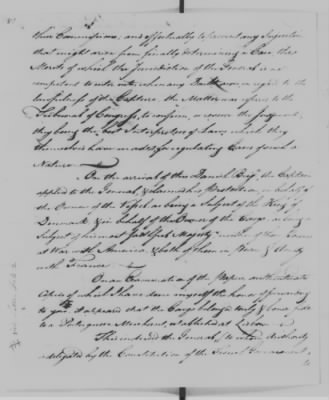 their Commissions; and effectually to prevent any Injustice
that might arise from finally determining a Case, the
Merits of which the Jurisdiction of the Tribunal is in-
competent to enter into, when any Doubts arise in regard to the
lawfulness of the Capture, the Matter was referred to the
Tribunal of Congress, to confirm, or reverse the judgment,
they being the best Interpreters of Laws, which they
themselves have made for regulating Cases of such a
Nature.
On the arrival of the Danish Brig, the Captain
applied to the General, & claimed in behalf
of the Owner of the Vessel as being a Subject of the King of
Denmark & in behalf of the Owner of the Cargo, as being a
Subject of his most faithful Majesty of the
at War with America & both of them in Peace & Amity
with France.
On an Examination of the Papers authenticate
Copies of which I have done myself the honor of forwarding
to you, it appeared that the Cargo belonged truly & bona fide
to a Portuguese Merchant, established at Lisbon.
This induced the General, to whom Authority
delegated by the Constitution of the Government,